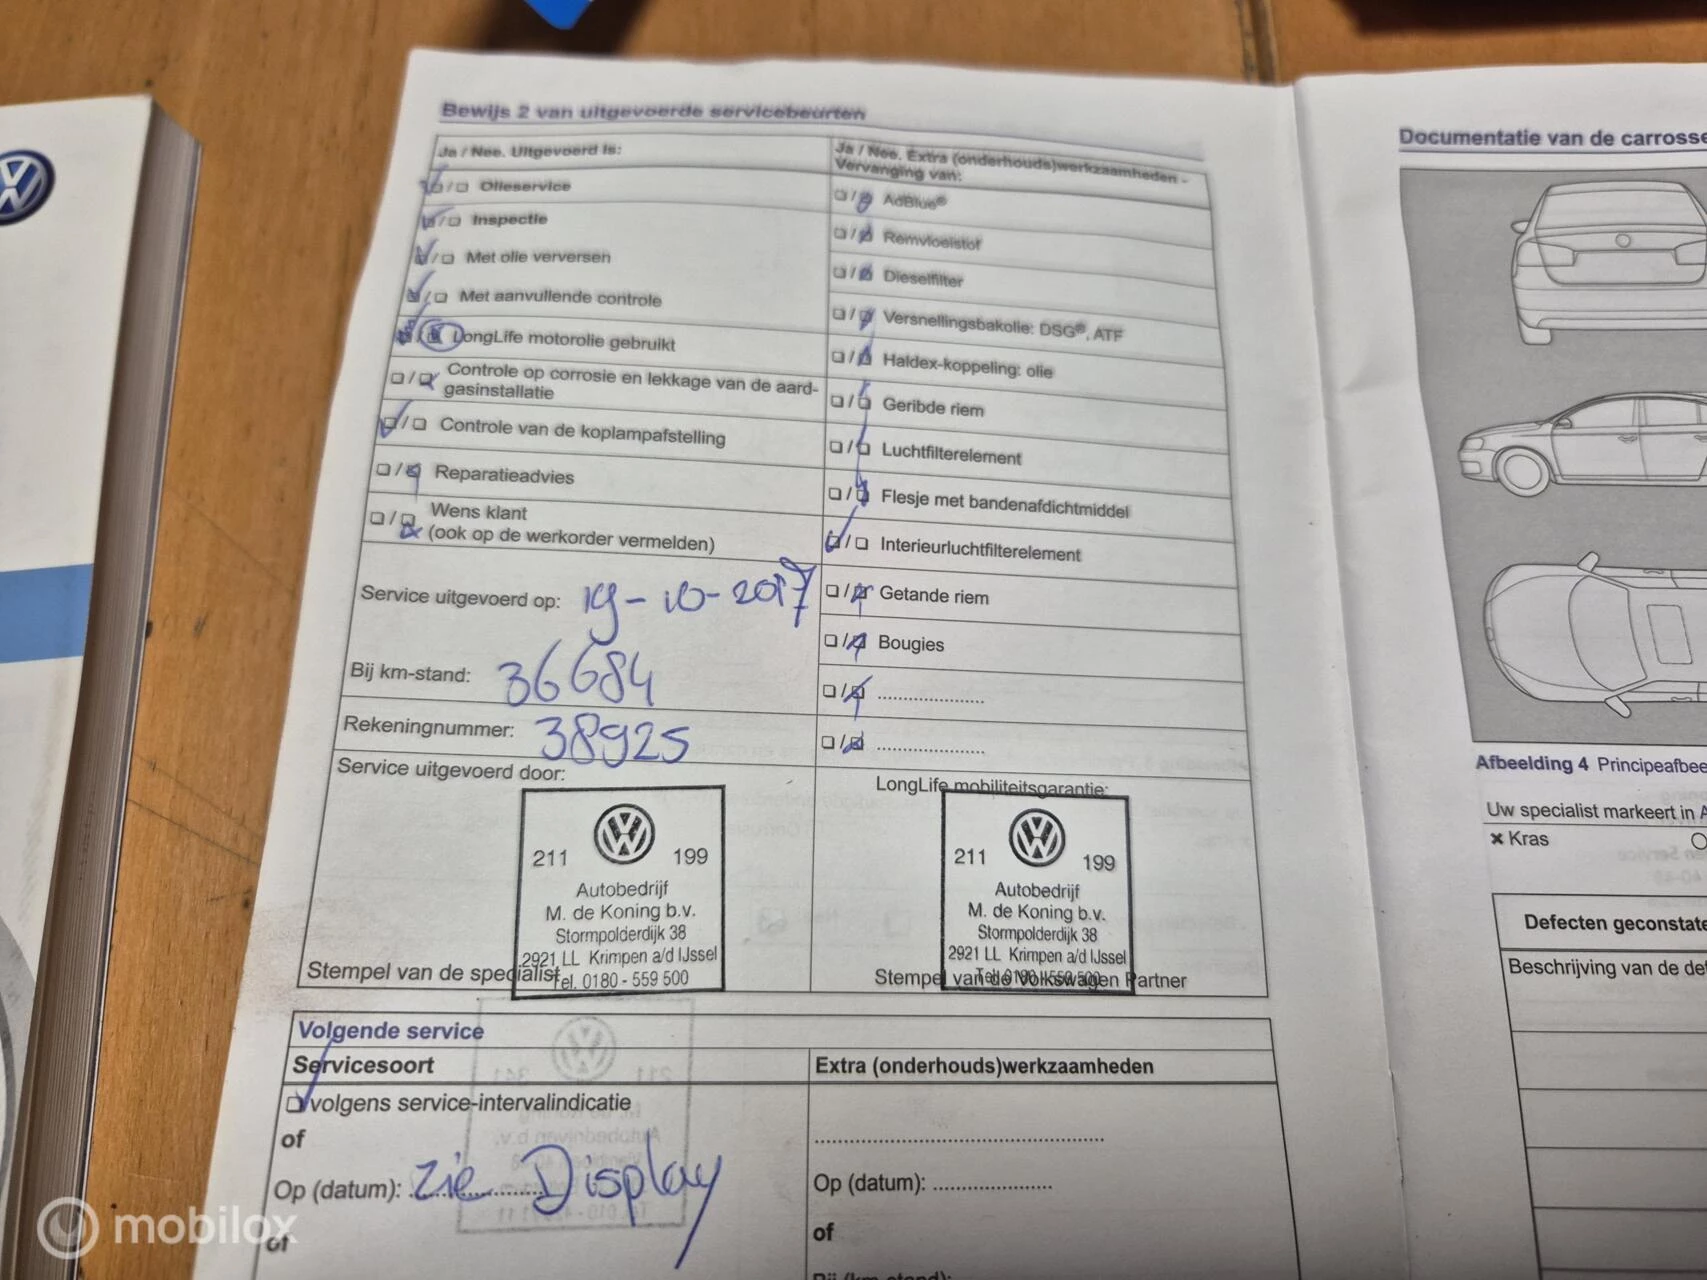 Bewijs 2 van uitgevoerde servicebeurten
Ja / Nee. Uitgevoerd is:
Olieservice
Inspectie
Met olie verversen
Met aanvullende controle
LongLife motorolie gebruikt
Controle op corrosie en lekkage van de aard-
gasinstallatie
Controle van de koplampafstelling
Reparatieadvies
Wens klant
(ook op de werkorder vermelden)
Service uitgevoerd op: 19-10-2017
Bij km-stand: 36684
Rekeningnummer: 38925
Service uitgevoerd door:
211 199
Autobedrijf
M. de Koning b.v.
Stormpolderdijk 38
2921 LL Krimpen a/d IJssel
Tel. 0180 - 559 500
Stempel van de specialist
Ja / Nee. Extra (onderhouds)werkzaamheden -
Vervanging van:
AdBlue®
Remvloeistof
Dieselfilter
Versnellingsbakolie: DSG®, ATF
Haldex-koppeling: olie
Geribde riem
Luchtfilterelement
Flesje met bandenafdichtmiddel
Interieurluchtfilterelement
Getande riem
Bougies
LongLife mobiliteitsgarantie:
211 199
Autobedrijf
M. de Koning b.v.
Stormpolderdijk 38
2921 LL Krimpen a/d IJssel
Tel. 0180 - 559 500
Stempel van de Volkswagen Partner
Volgende service
Servicesoort
volgens service-intervalindicatie
of
Op (datum): zie Display
of
Extra (onderhouds)werkzaamheden
Op (datum):
of
Documentatie van de carrosse
Afbeelding 4 Principeafbee
Uw specialist markeert in A
Kras
Defecten geconstate
Beschrijving van de def
mobilox